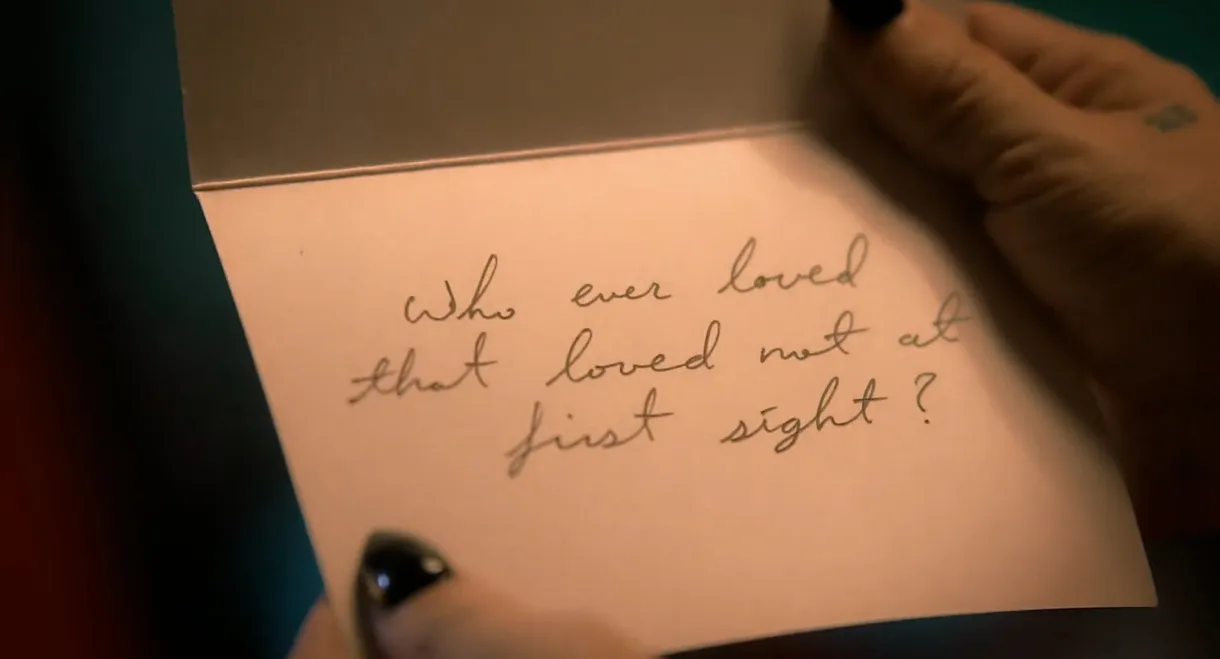 Who ever loved
that loved not at
first sight?